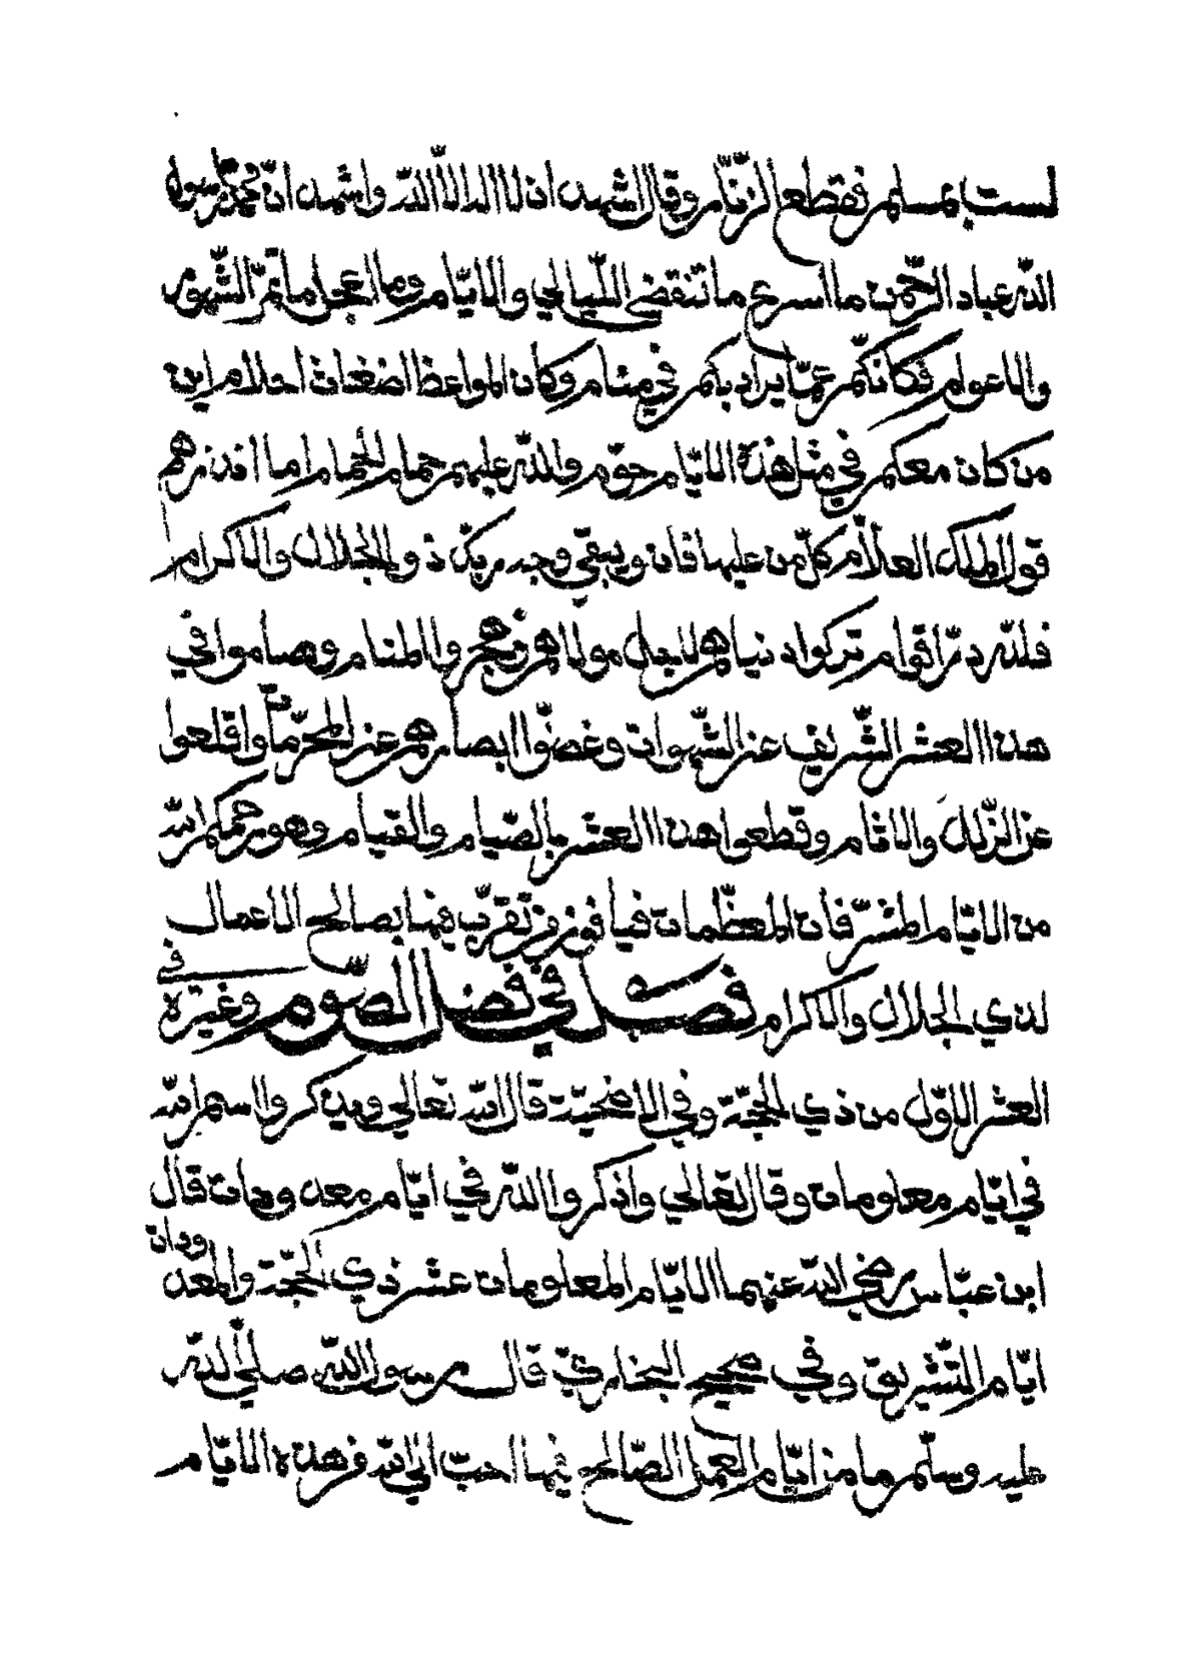 لست بمسلم فقطع الزنّار وقال اشهد ان لا اله الاّ الله واشهد انّ محمّدا رسول
الله عباد الرّحمن ما اسرع ما تنقضي اللّيالي والايّام وما اعجل ما تمرّ الشّهور
والاعوام فكانّكم عمّا يراد بكم في منام وكان المواعظ اضغاث احلام اين
من كان معكم في مثل هذه الايّام حوّم والله عليهم حمام الحمام اما انذرهم
قول الملك العلاّم كلّ من عليها فان ويبقي وجه ربّك ذو الجلال والاكرام
فللّه درّ اقوام تركوا دنياهم لنيل مولاهم وهجروا المنام وصاموا في
هذا العشر الشّريف عن الشّهوات وغضّوا ابصارهم عن المحرّمات واقلعوا
عن الزّلل والاثام وقطعوا هذا العشر بالصّيام والقيام وهو رحمكم الله
من الايّام المشرّفات المعظّمات فيا فوز من تقرّب فيها بصالح الاعمال
لذي الجلال والاكرام فصل في فضل الصّوم وغيره في
العشر الاوّل من ذي الحجّة وفي الاضحيّة قال الله تعالي ويذكروا اسم الله
في ايّام معلومات وقال تعالي واذكروا الله في ايّام معدودات قال
ابن عبّاس رضي الله عنهما الايّام المعلومات عشر ذي الحجّة والمعدودات
ايّام التّشريق وفي صحيح البخاريّ قال رسول الله صلّي الله
عليه وسلّم وما من ايّام العمل الصّالح فيها احبّ الي الله من هذه الايّام